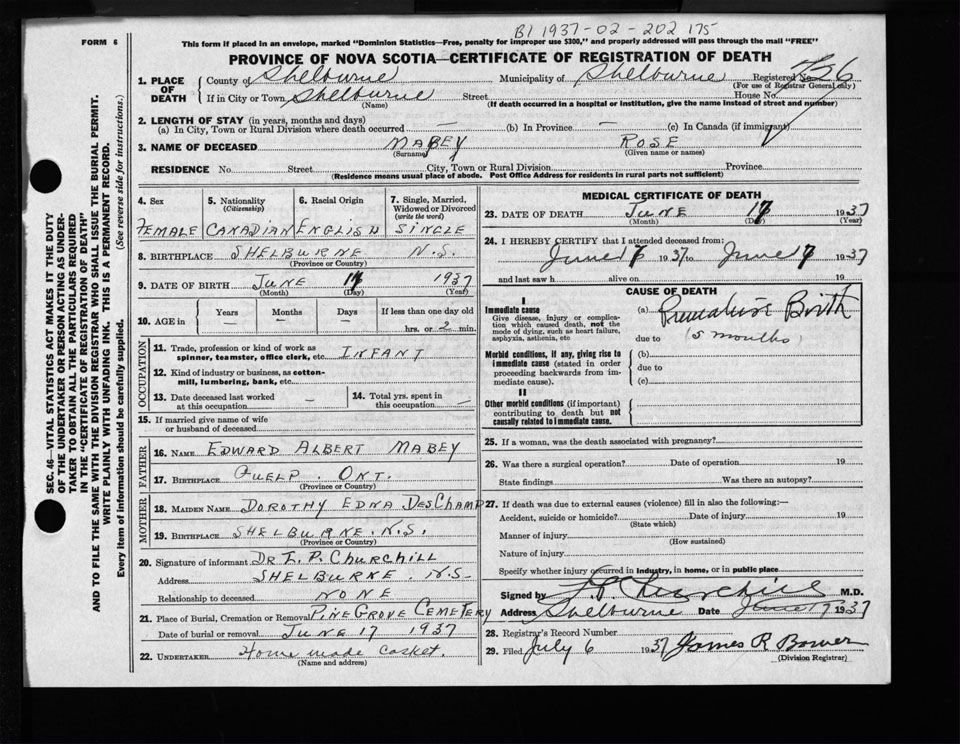 B1 1937-02-202175
FORM 6
This form if placed in an envelope, marked "Dominion Statistics—Free, penalty for improper use $300," and properly addressed will pass through the mail "FREE"
PROVINCE OF NOVA SCOTIA—CERTIFICATE OF REGISTRATION OF DEATH
1. PLACE OF DEATH
County of Shelburne Municipality of Shelburne Registered No.
(For use of Registrar General only)
If in City or Town Shelburne Street House No.
(Name) (If death occurred in a hospital or institution, give the name instead of street and number)
2. LENGTH OF STAY (in years, months and days)
(a) In City, Town or Rural Division where death occurred — (b) In Province — (c) In Canada (if immigrant)
3. NAME OF DECEASED MABEY ROSE
(Surname) (Given name or names)
RESIDENCE No. Street City, Town or Rural Division Province
(Residence means usual place of abode. Post Office Address for residents in rural parts not sufficient)
SEC. 46—VITAL STATISTICS ACT MAKES IT THE DUTY
OF THE UNDERTAKER OR PERSON ACTING AS UNDER-
TAKER TO OBTAIN ALL THE PARTICULARS REQUIRED
IN THE "CERTIFICATE OF REGISTRATION OF DEATH"
AND TO FILE THE SAME WITH THE DIVISION REGISTRAR WHO SHALL ISSUE THE BURIAL PERMIT.
WRITE PLAINLY WITH UNFADING INK. THIS IS A PERMANENT RECORD.
Every item of information should be carefully supplied. (See reverse side for instructions.)
4. Sex 5. Nationality (Citizenship) 6. Racial Origin 7. Single, Married, Widowed or Divorced (write the word)
FEMALE CANADIAN ENGLISH SINGLE
8. BIRTHPLACE SHELBURNE N.S.
(Province or Country)
9. DATE OF BIRTH JUNE 1937
(Month) (Day) (Year)
10. AGE in Years Months Days If less than one day old
— — — hrs. or 2 min.
OCCUPATION
11. Trade, profession or kind of work as
spinner, teamster, office clerk, etc. INFANT
12. Kind of industry or business, as cotton-
mill, lumbering, bank, etc.
13. Date deceased last worked
at this occupation —
14. Total yrs. spent in
this occupation —
15. If married give name of wife
or husband of deceased
FATHER
16. NAME EDWARD ALBERT MABEY
17. BIRTHPLACE GUELP. ONT.
(Province or Country)
MOTHER
18. MAIDEN NAME DOROTHY EDNA DESCHAMP
19. BIRTHPLACE SHELBURNE. N.S.
(Province or Country)
20. Signature of informant DR L. P. CHURCHILL
Address SHELBURNE. N.S.
Relationship to deceased NONE
21. Place of Burial, Cremation or Removal PINE GROVE CEMETERY
Date of burial or removal JUNE 17 1937
22. UNDERTAKER Home made casket.
(Name and address)
MEDICAL CERTIFICATE OF DEATH
23. DATE OF DEATH JUNE 17 1937
(Month) (Day) (Year)
24. I HEREBY CERTIFY that I attended deceased from:
June 1937 to June 1937
and last saw h alive on 19
CAUSE OF DEATH
I
Immediate cause
Give disease, injury or complica-
tion which caused death, not the
mode of dying, such as heart failure,
asphyxia, asthenia, etc
(a) Premature Birth
due to (5 months)
Morbid conditions, if any, giving rise to
immediate cause (stated in order
proceeding backwards from im-
mediate cause).
(b)
due to
(c)
II
Other morbid conditions (if important)
contributing to death but not
causally related to immediate cause.
25. If a woman, was the death associated with pregnancy?
26. Was there a surgical operation? Date of operation 19
State findings Was there an autopsy?
27. If death was due to external causes (violence) fill in also the following:—
Accident, suicide or homicide? Date of injury 19
(State which)
Manner of injury
(How sustained)
Nature of injury
Specify whether injury occurred in industry, in home, or in public place
Signed by L. P. Churchill M.D.
Address Shelburne Date June 17 1937
28. Registrar's Record Number
29. Filed July 6 1937 James R Bower
(Division Registrar)